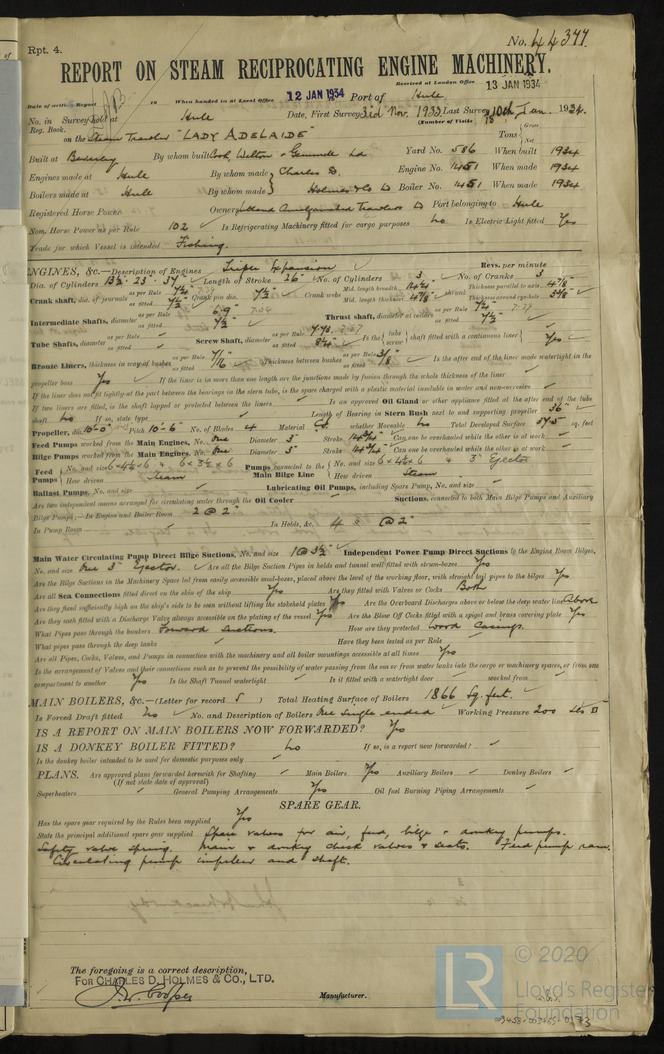 Rpt. 4.
No. 44377.
REPORT ON STEAM RECIPROCATING ENGINE MACHINERY.
Received at London Office 13 JAN 1934
Date of writing Report When handed in at Local Office 12 JAN 1934 Port of Hull
No. in Survey held at Hull Date, First Survey 3rd Nov. 1933 Last Survey 10th Jan. 1934.
Reg. Book. (Number of Visits
on the Steam Trawler "LADY ADELAIDE" Tons { Gross Net
Built at Beverley By whom built Cook, Welton & Gemmell Ld Yard No. 586 When built 1934
Engines made at Hull By whom made Charles D. Engine No. 1451 When made 1934
Boilers made at Hull By whom made Holmes & Co Ld Boiler No. 1451 When made 1934
Registered Horse Power Owners Amalgamated Trawlers Ld Port belonging to Hull
Nom. Horse Power as per Rule 102 Is Refrigerating Machinery fitted for cargo purposes No Is Electric Light fitted Yes
Trade for which Vessel is intended Fishing.
ENGINES, &c.—Description of Engines Triple Expansion Revs. per minute
Dia. of Cylinders 13½ - 23 - 37 Length of Stroke 26 No. of Cylinders 3 No. of Cranks 3
Crank shaft, dia. of journals as per Rule as fitted 7½ Crank pin dia. 7½ Crank webs Mid. length breadth Mid. length thickness 4⅞ Thickness parallel to axis 4⅞ Thickness around eye-hole
Intermediate Shafts, diameter as per Rule 6.9 as fitted 7½ Thrust shaft, diameter at collars as per Rule as fitted 7½
Tube Shafts, diameter as per Rule as fitted Screw Shaft, diameter as per Rule as fitted Is the { tube screw } shaft fitted with a continuous liner { Yes
Bronze Liners, thickness in way of bushes as per Rule as fitted Thickness between bushes as per Rule as fitted Is the after end of the liner made watertight in the
propeller boss Yes If the liner is in more than one length are the junctions made by fusion through the whole thickness of the liner
If the liner does not fit tightly at the part between the bearings in the stern tube, is the space charged with a plastic material insoluble in water and non-corrosive
If two liners are fitted, is the shaft lapped or protected between the liners Is an approved Oil Gland or other appliance fitted at the after end of the tube
shaft No If so, state type Length of Bearing in Stern Bush next to and supporting propeller 36"
Propeller, dia. 10'-0" Pitch 10'-6" No. of Blades 4 Material whether Moveable No Total Developed Surface sq. feet
Feed Pumps worked from the Main Engines, No. One Diameter 3" Stroke Can one be overhauled while the other is at work
Bilge Pumps worked from the Main Engines, No. One Diameter 3" Stroke Can one be overhauled while the other is at work
Feed Pumps { No. and size How driven Steam Pumps connected to the Main Bilge Line { No. and size & 3" Ejector How driven Steam
Ballast Pumps, No. and size Lubricating Oil Pumps, including Spare Pump, No. and size
Are two independent means arranged for circulating water through the Oil Cooler Suctions, connected to both Main Bilge Pumps and Auxiliary
Bilge Pumps:—In Engine and Boiler Room 2 @ 2"
In Pump Room In Holds, &c. 4 @ 2"
Main Water Circulating Pump Direct Bilge Suctions, No. and size 1 @ 3½ Independent Power Pump Direct Suctions to the Engine Room Bilges,
No. and size One 3" Ejector. Are all the Bilge Suction Pipes in holds and tunnel well fitted with strum-boxes Yes
Are the Bilge Suctions in the Machinery Space led from easily accessible mud-boxes, placed above the level of the working floor, with straight tail pipes to the bilges Yes
Are all Sea Connections fitted direct on the skin of the ship Yes Are they fitted with Valves or Cocks Both
Are they fixed sufficiently high on the ship's side to be seen without lifting the stokehold plates Yes Are the Overboard Discharges above or below the deep water line Above
Are they each fitted with a Discharge Valve always accessible on the plating of the vessel Yes Are the Blow Off Cocks fitted with a spigot and brass covering plate Yes
What Pipes pass through the bunkers Forward suctions. How are they protected Wood casings.
What pipes pass through the deep tanks Have they been tested as per Rule
Are all Pipes, Cocks, Valves, and Pumps in connection with the machinery and all boiler mountings accessible at all times Yes
Is the arrangement of Valves and their connections such as to prevent the possibility of water passing from the sea or from water tanks into the cargo or machinery spaces, or from one
compartment to another Yes Is the Shaft Tunnel watertight Is it fitted with a watertight door worked from
MAIN BOILERS, &c.—(Letter for record S) Total Heating Surface of Boilers 1866 Sq. feet.
Is Forced Draft fitted No No. and Description of Boilers One single ended Working Pressure 200 lbs
IS A REPORT ON MAIN BOILERS NOW FORWARDED? Yes
IS A DONKEY BOILER FITTED? No If so, is a report now forwarded?
Is the donkey boiler intended to be used for domestic purposes only
PLANS. Are approved plans forwarded herewith for Shafting Main Boilers Yes Auxiliary Boilers Donkey Boilers
(If not state date of approval)
Superheaters General Pumping Arrangements Yes Oil fuel Burning Piping Arrangements
SPARE GEAR.
Has the spare gear required by the Rules been supplied Yes
State the principal additional spare gear supplied Spare valves for air, feed, bilge & donkey pumps.
Safety valve spring. Main & donkey check valves & seats. Feed pump ram.
Circulating pump impeller and shaft.
The foregoing is a correct description,
FOR CHARLES D. HOLMES & CO., LTD.
Manufacturer.
© 2020
LR Lloyd's Register
Foundation